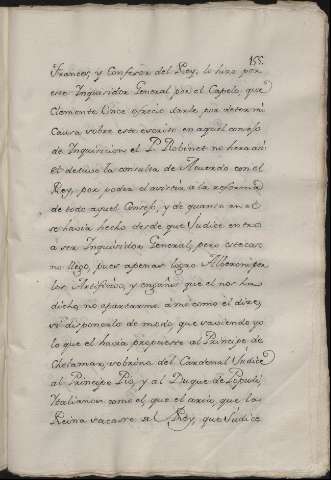 155
Frances, y Confesor del Rey, lo hizo por
este Inquisidor General por el Capelo, que
Clemente Once ofrecio darle por determi
Causa sobre este escrito en aquel consejo
de Inquisicion, el P. Robinet no hera
el detuvo la consulta de Acuerdo con el
Rey, por poder assistir á la reforma
de todo aquel Consejo, y de quanto en el
se havia hecho desde que Judice entró
á ser Inquisidor General, pero
no llegó, pues apenas logró Alberoni por
los Artificios, y engaños que el nos ha
dicho no apartarme á mi como el dice,
si disponerlo de modo que saviendo yo
lo que el havia propuesto al Principe de
Chelamar, sobrino del Cardenal Judice
al Principe Pio, y al Duque de Populi,
Italianos como el, que el arrio, que la
Reina sacasse al Rey, que Judice